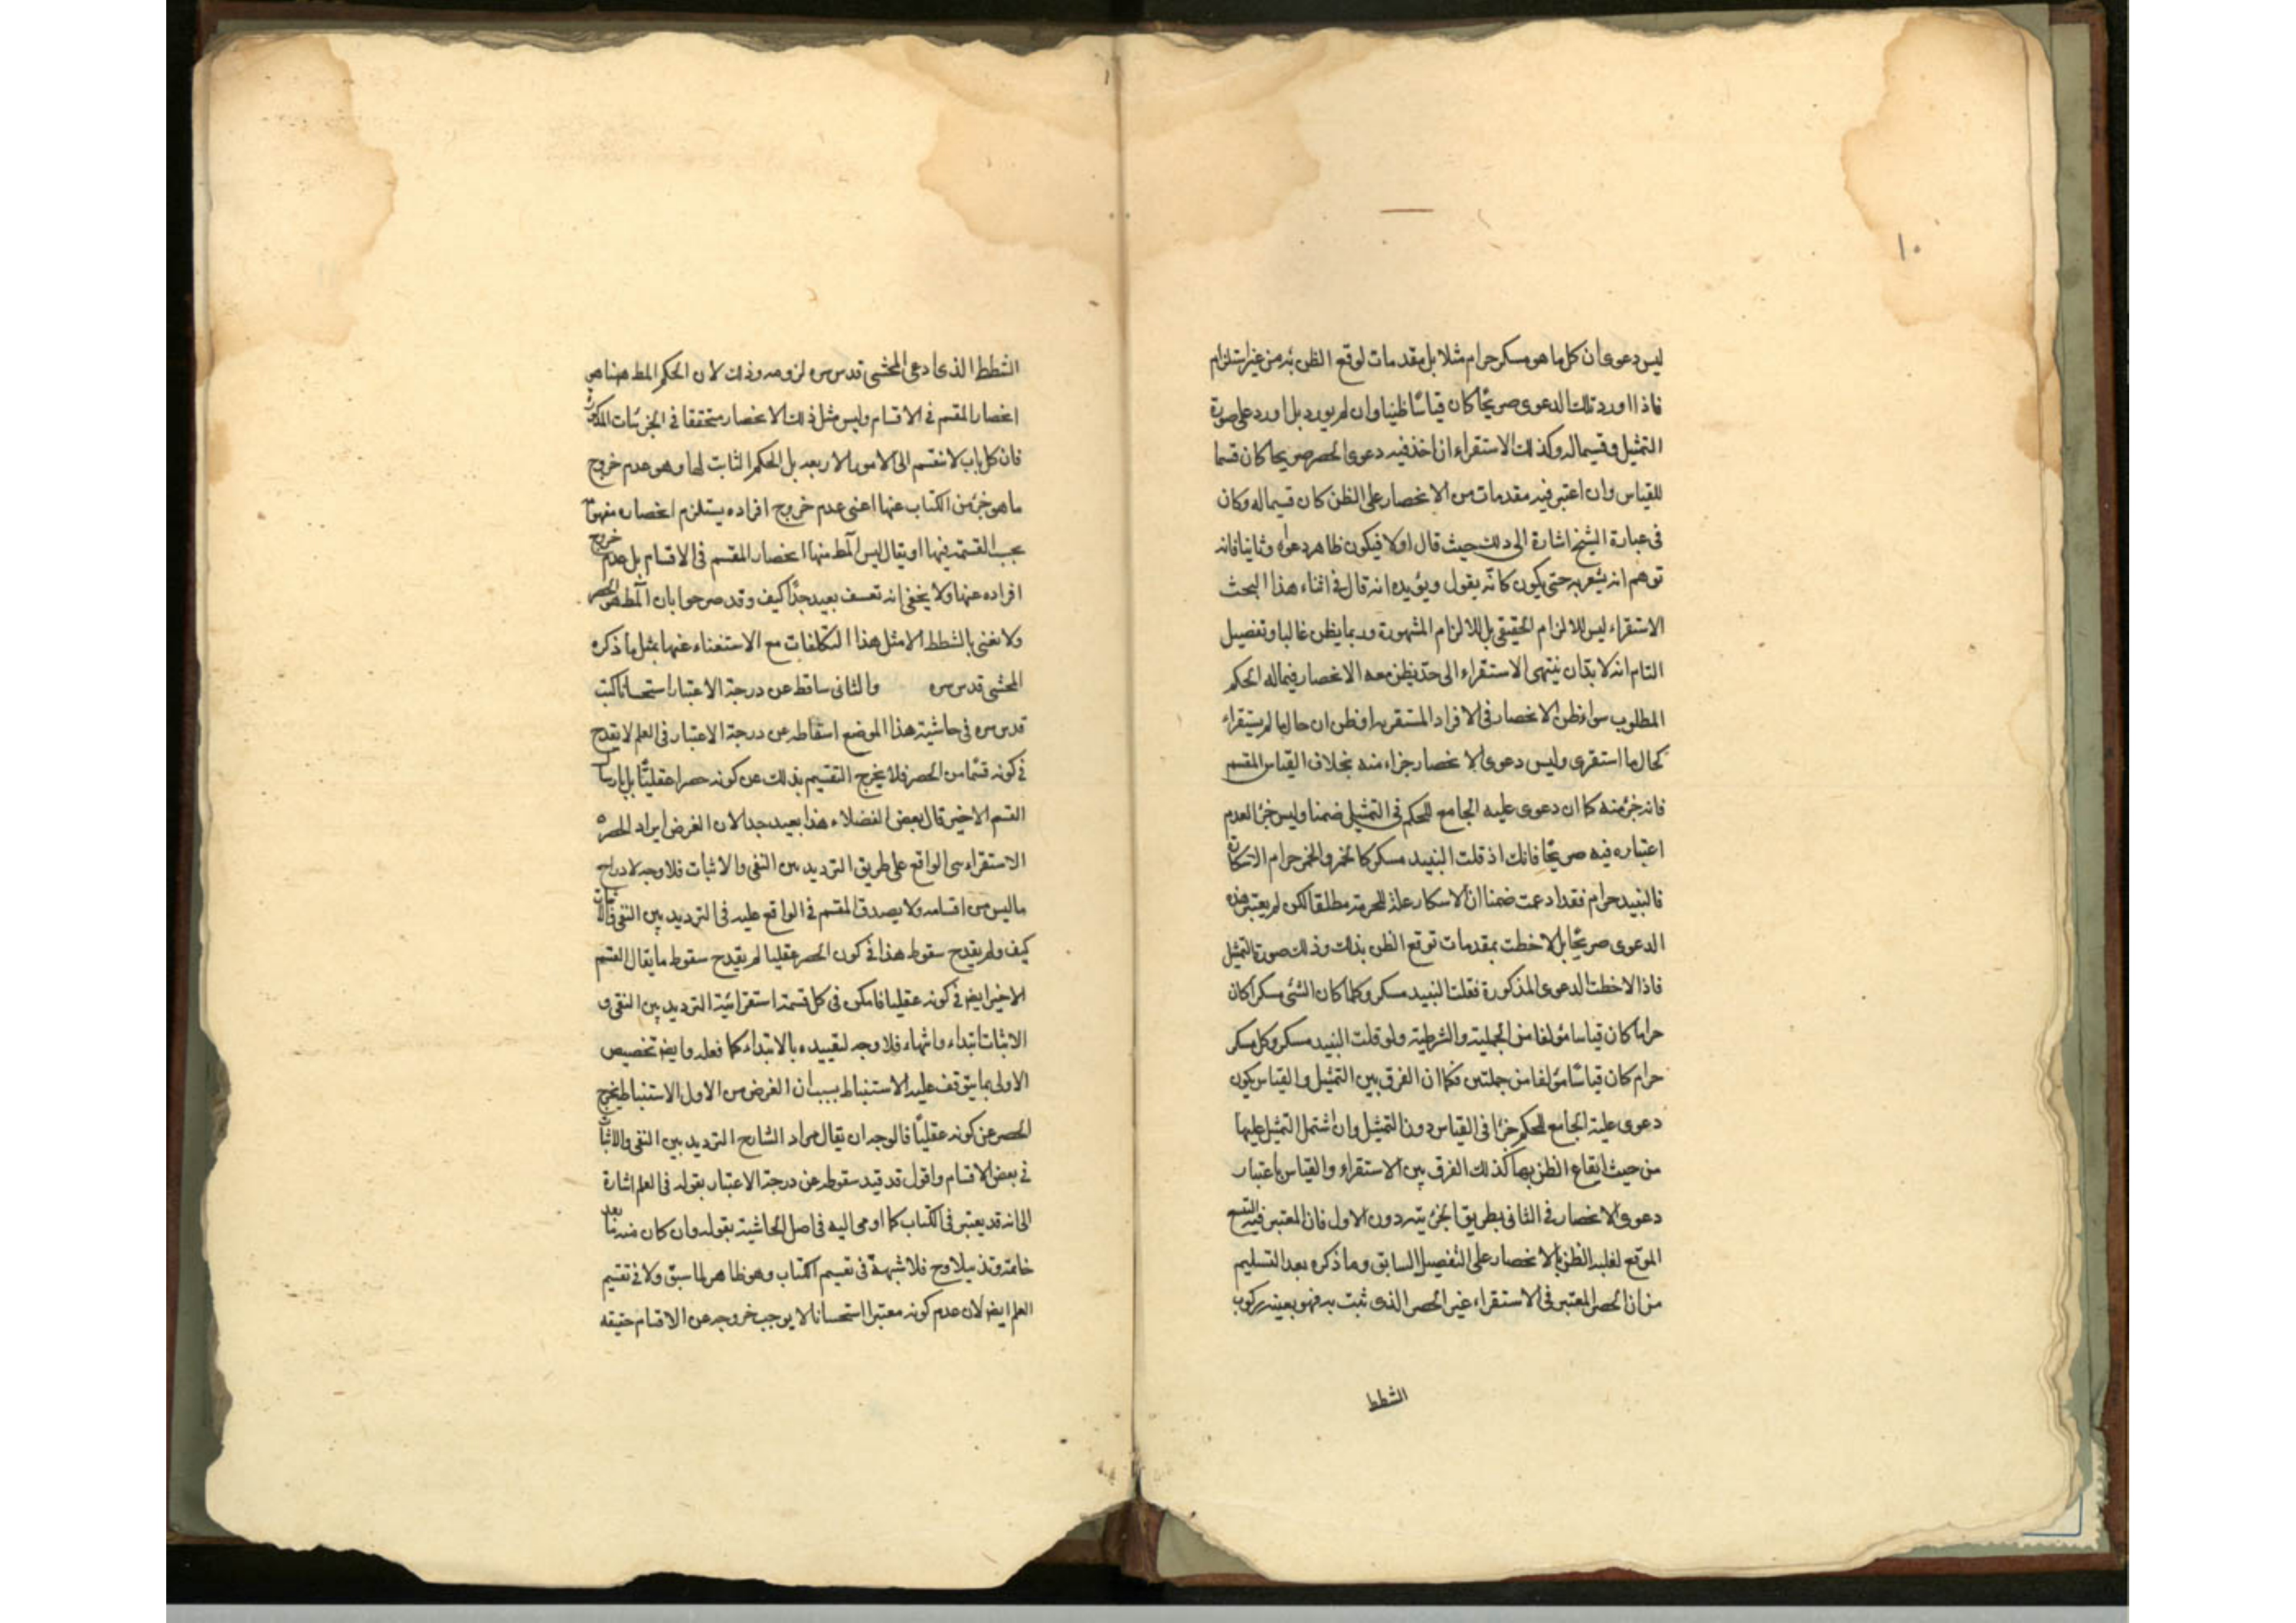 ١٠
ليس دعوى ان كل ما هو مسكر حرام مثلا بل مقدمات لوقع الظن به من غير استلزام
فاذا اورد تلك الدعوى صريحًا كان قياسًا ظنيا وان لم يورد بل اورد على صورة
التمثيل وقسيما له وكذلك الاستقراء ان اخذ فيه دعوى الحصر صريحا كان قسما
للقياس وان اعتبر فيه مقدمات من الانحصار على الظن كان قسيما له وكان
فى عبارة الشيخ اشارة الى ذلك حيث قال اولا فيكون ظاهر دعواه وثانيا فانه
توهم انه يشعر به حتى يكون كانّه يقول ويؤيده انه قال فى اثناء هذا البحث
الاستقراء ليس للالزام الحقيقى بل للالزام المشهورة وربما يظن غالبا وتفصيل
التام انه لا بدّ ان ينتهى الاستقراء الى حدّ يظن معه الانحصار فيما له الحكم
المطلوب سواء ظن الانحصار فى الافراد المستقريه او ظن ان حال ما لم يستقراء
كحال ما استقرى وليس دعوى الانحصار جزاء منه بخلاف القياس المقسم
فانه جزء منه كما ان دعوى علية الجامع للحكم فى التمثيل ضمنا وليس جزءا لعدم
اعتباره فيه صريحًا فانك اذ قلت النبيد مسكر كالخمر والخمر حرام لاسكاره
فالنبيد حرام فقد ادعت ضمنا ان الاسكار علة للحرمة مطلقا لكن لم يعتبر هذه
الدعوى صريحًا بل لاخطت بمقدمات توقع الظن بذلك وذلك صورة التمثيل
فاذا لاخطت الدعوى المذكورة فقلت النبيد مسكر وكلما كان الشئ مسكرا كان
حراما كان قياسا مؤلفا من الحملية والشرطية ولو قلت النبيد مسكر وكل مسكر
حرام كان قياسًا مؤلفا من جملتين فكما ان الفرق بين التمثيل والقياس يكون
دعوى علية الجامع للحكم جزءا فى القياس دون التمثيل وان اشتمل التمثيل عليها
من حيث ايقاع الظن بها كذلك الفرق بين الاستقراء والقياس باعتبار
دعوى الانحصار فى الثانى بطريق الجزئيته دون الاول فان المعتبر فيه التتبع
الموقع لغلبه الظن بالانحصار على التفصيل السابق وما ذكره بعد التسليم
من ان الحصر المعتبر فى الاستقراء غير الحصر الذى ثبت به فهو بعينه ركوب
الشطط
الشطط الذى ادعى المحشى قدس سره لزومه وذلك لان الحكم المط ههنا هى
انحصار المقسم فى الاقسام وليس مثل ذلك الانحصار متحققا فى الجزئيات المذكورة
فان كل باب لا ينقسم الى الامور الاربعه بل الحكم الثابت لها وهو عدم خروج
ما هو جزء من الكتاب عنها اعنى عدم خروج افراده يستلزم انحصار مفهومه
بحسب القسمة فيها او يقال ليس المط منها انحصار المقسم فى الاقسام بل عدم خروج
افراده عنها ولا يخفى انه تعسف بعيد جدًّا كيف وقد صرحوا بان المط هو الحصر
ولا نعنى بالشطط الا مثل هذا التكلفات مع الاستغناء عنها بمثل ما ذكره
المحشى قدس سره والثانى ساقط عن درجة الاعتبار استحسانا كتب
قدس سره فى حاشية هذا الموضع اسقاطه عن درجة الاعتبار فى العلم لا يقدح
فى كونه قسما من الحصر فلا يخرج التقسيم بذلك عن كونه حصرا عقليًّا بل بارسال
القسم الاخير قال بعض الفضلاء هذا بعيد جدا لان الغرض ايراد الحصر
الاستقراءى الواقع على طريق الترديد بين النفى والاثبات فلا وجه لادراج
ما ليس من اقسامه ولا يصدق المقسم فى الواقع عليه فى الترديد بين النفى والاثبات
كيف ولم يقدح سقوط هذا فى كون الحصر عقليا لم يقدح سقوط ما يقال القسم
الاخير ايض فى كونه عقليا فامكن فى كل قسمة استقرائية الترديد بين النفى و
الاثبات ابتداء وانتهاء فلا وجه لتقييده بالابتداء كما فعله وايض تخصيص
الاولى بما يتوقف عليه الاستنباط بسبب ان الغرض من الاول الاستنباط يخرج
الحصر عن كونه عقليًّا فالوجه ان يقال مراد الشارح الترديد بين النفى والاثبات
فى بعض الاقسام واقول قد قيد سقوطه عن درجة الاعتبار بقوله فى العلم اشارة
الى انه قد يعتبر فى الكتاب كما اومى اليه فى اصل الحاشية بقوله وان كان منه بعد
خاتمة وتذييلا وح فلا شبهة فى تقسيم الكتاب وهو ظاهر لما سبق ولا فى تقسيم
العلم ايض لان عدم كونه معتبرا استحسانا لا يوجب خروجه عن الاقسام حقيقه